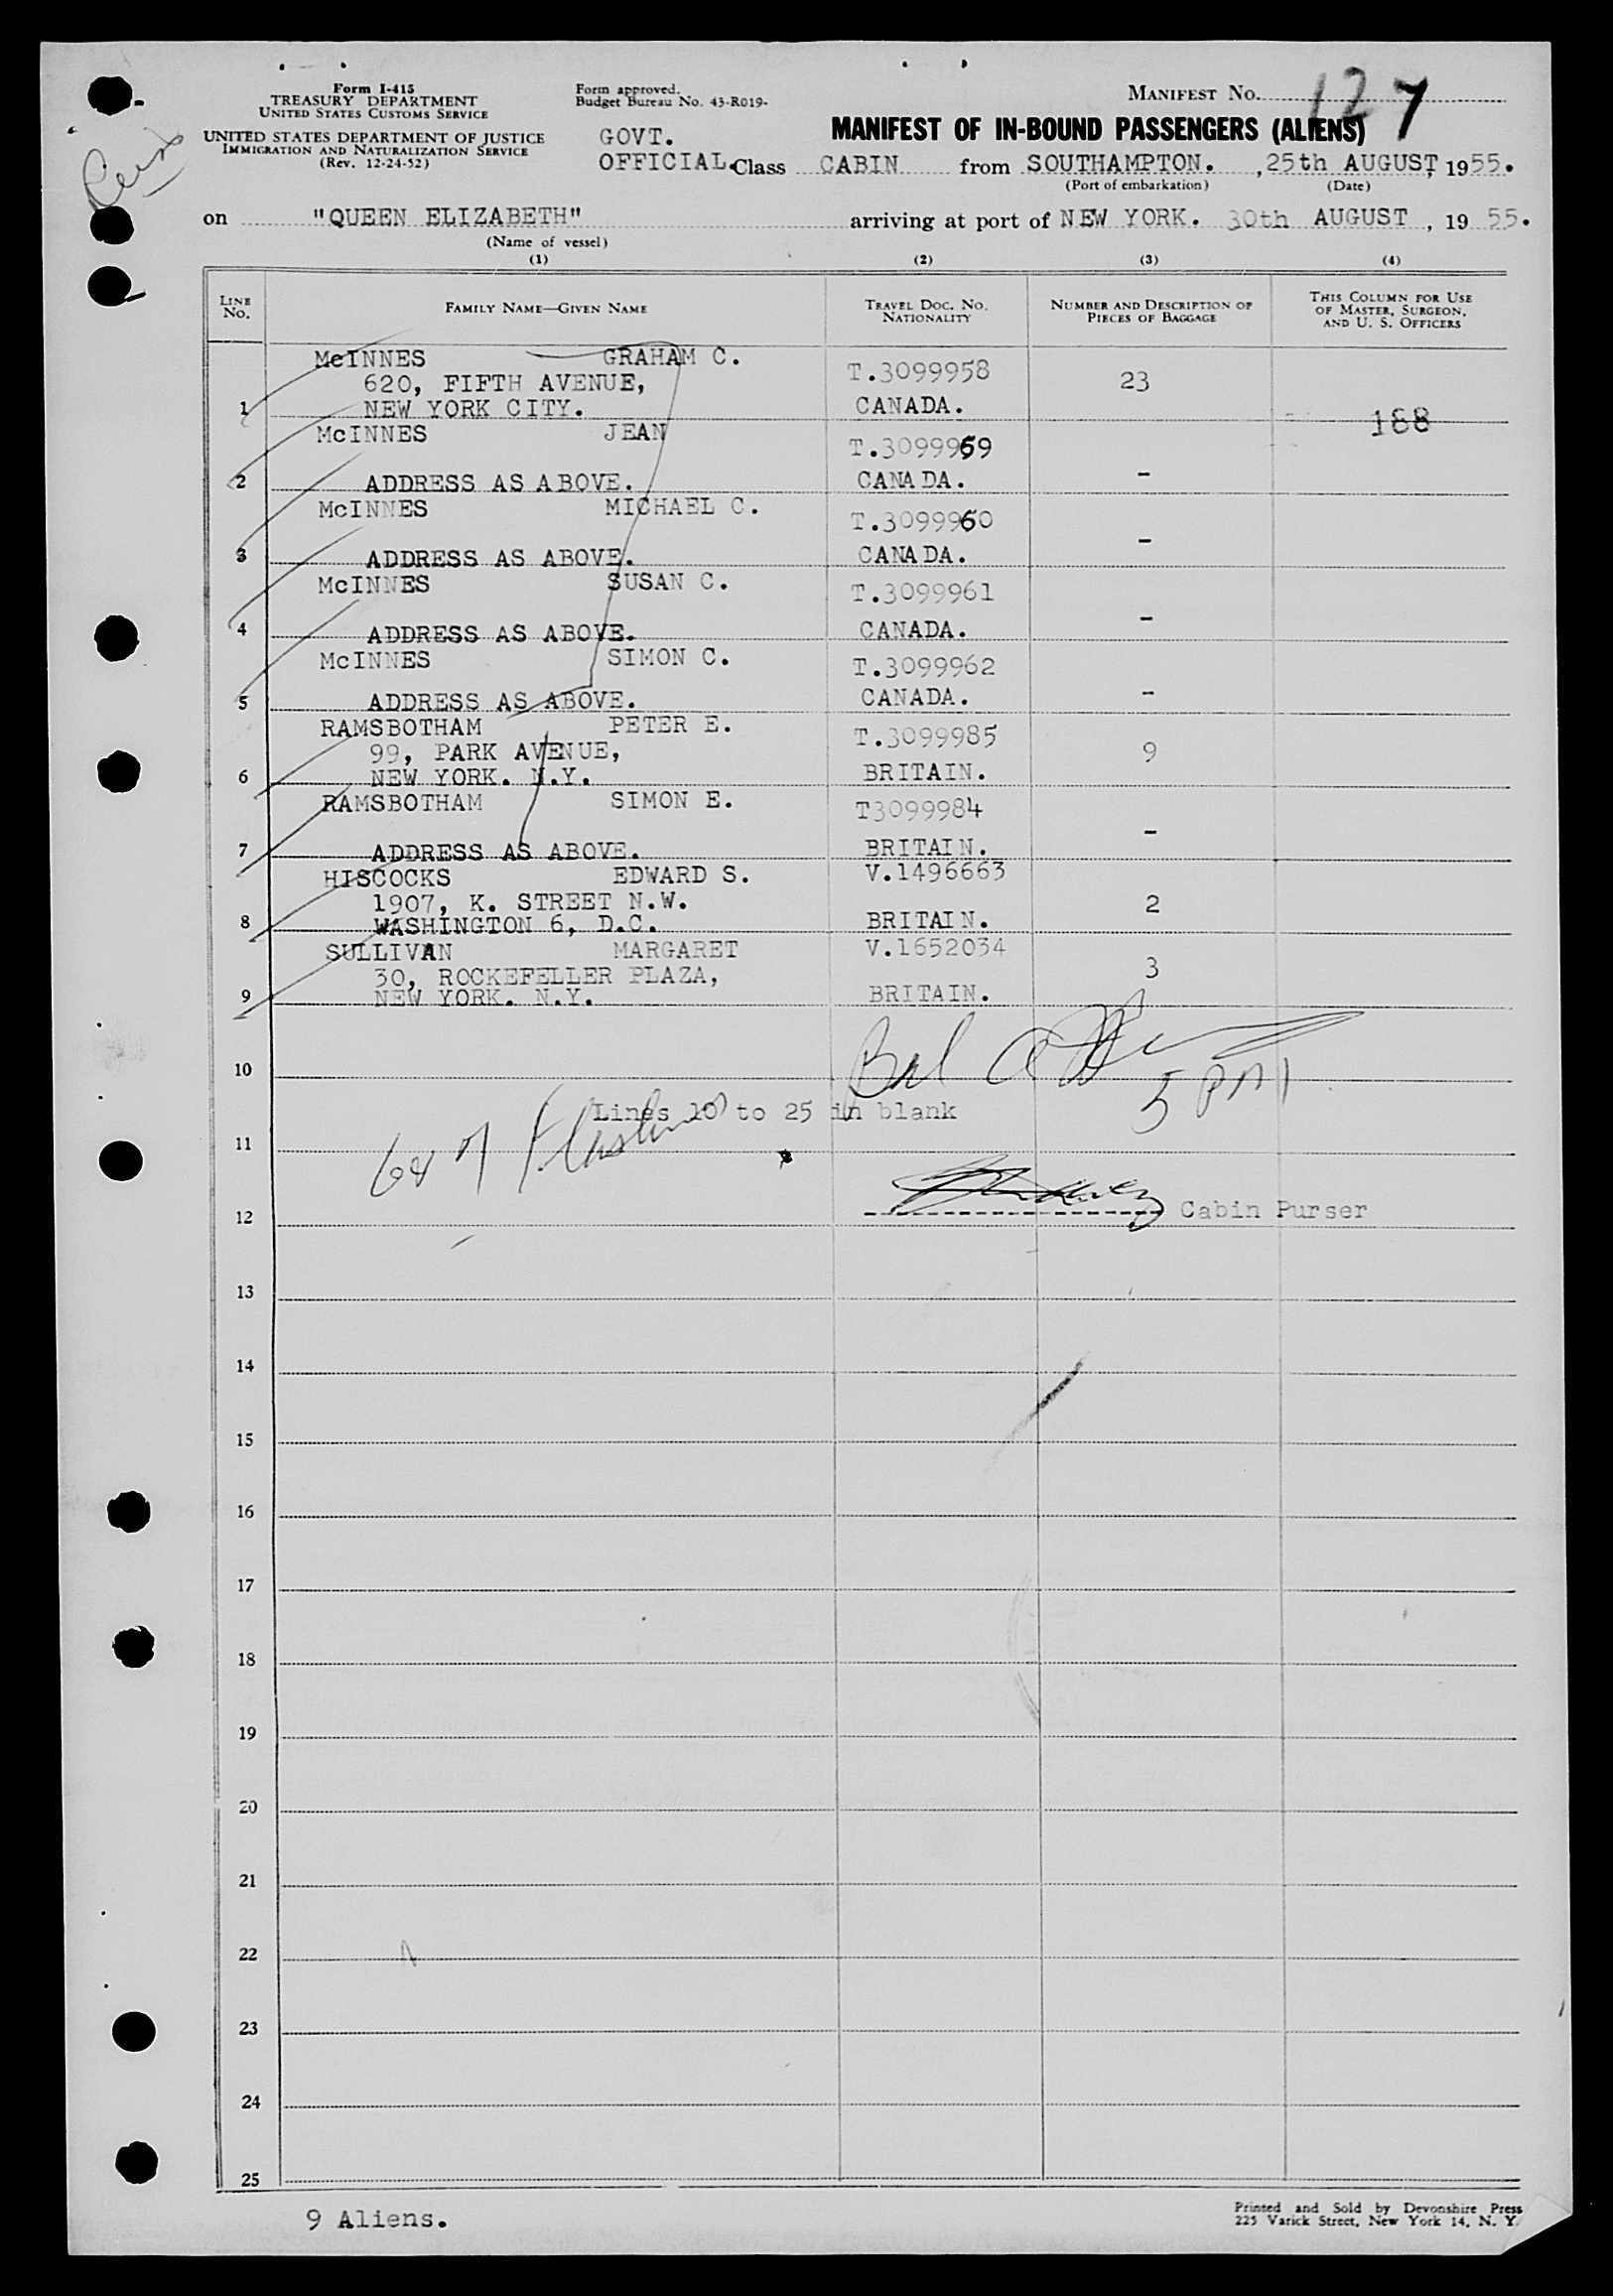 Form I-415
TREASURY DEPARTMENT
UNITED STATES CUSTOMS SERVICE
UNITED STATES DEPARTMENT OF JUSTICE
IMMIGRATION AND NATURALIZATION SERVICE
(Rev. 12-24-52)
Form approved.
Budget Bureau No. 43-R019-
MANIFEST No. 127
MANIFEST OF IN-BOUND PASSENGERS (ALIENS)
GOVT.
OFFICIAL. Class CABIN from SOUTHAMPTON. , 25th AUGUST, 1955.
(Port of embarkation) (Date)
on "QUEEN ELIZABETH" arriving at port of NEW YORK. 30th AUGUST , 19 55.
(Name of vessel)
(1) (2) (3) (4)
LINE No. FAMILY NAME—GIVEN NAME TRAVEL DOC. NO. NATIONALITY NUMBER AND DESCRIPTION OF PIECES OF BAGGAGE THIS COLUMN FOR USE OF MASTER, SURGEON, AND U. S. OFFICERS
McINNES GRAHAM C. T.3099958
620, FIFTH AVENUE, 23
1 NEW YORK CITY. CANADA. 188
McINNES JEAN T.3099959
2 ADDRESS AS ABOVE. CANADA. -
McINNES MICHAEL C. T.3099960
3 ADDRESS AS ABOVE. CANADA. -
McINNES SUSAN C. T.3099961
4 ADDRESS AS ABOVE. CANADA. -
McINNES SIMON C. T.3099962
5 ADDRESS AS ABOVE. CANADA. -
RAMSBOTHAM PETER E. T.3099985
99, PARK AVENUE, 9
6 NEW YORK. N.Y. BRITAIN.
RAMSBOTHAM SIMON E. T3099984
7 ADDRESS AS ABOVE. BRITAIN. -
HISCOCKS EDWARD S. V.1496663
1907, K. STREET N.W. 2
8 WASHINGTON 6, D.C. BRITAIN.
SULLIVAN MARGARET V.1652034
30, ROCKEFELLER PLAZA, 3
9 NEW YORK. N.Y. BRITAIN.
10
5 PM
Lines 10 to 25 in blank
11
12 Cabin Purser
13
14
15
16
17
18
19
20
21
22
23
24
25
9 Aliens.
Printed and Sold by Devonshire Press
225 Varick Street, New York 14, N. Y.